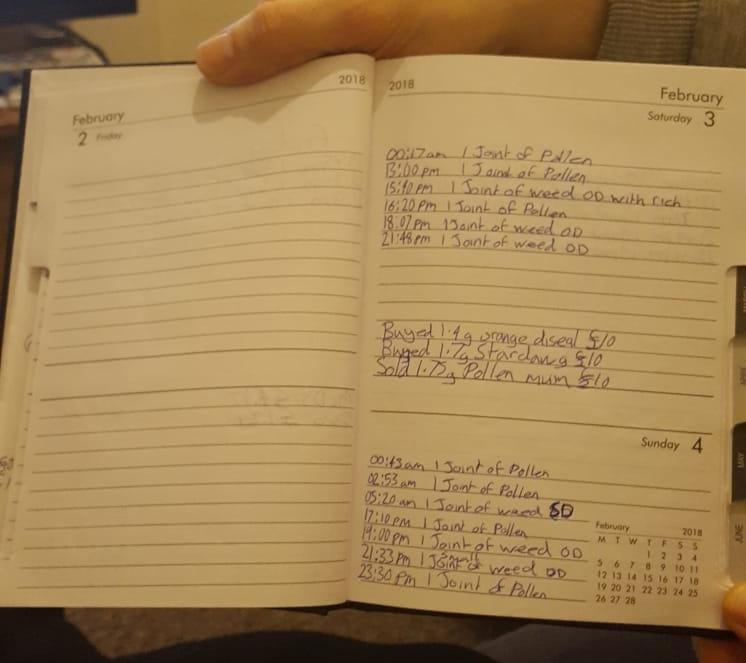 2018
February
2 Friday
2018
February
Saturday 3
00:17am 1 Joint of Pollen
13:00pm 1 Joint of Pollen
15:40pm 1 Joint of weed OD with rich
16:20pm 1 Joint of Pollen
18:07pm 1 Joint of weed OD
21:48pm 1 Joint of weed OD
Buyed 1.4g orange diseal £10
Buyed 1.7g Stardawg £10
Sold 1.75g Pollen mum £10
Sunday 4
00:43am 1 Joint of Pollen
02:53am 1 Joint of Pollen
05:20am 1 Joint of weed SD
17:10pm 1 Joint of Pollen
19:00pm 1 Joint of weed OD
21:33pm 1 Joint of weed OD
23:30pm 1 Joint of Pollen
February 2018
M T W T F S S
1 2 3 4
5 6 7 8 9 10 11
12 13 14 15 16 17 18
19 20 21 22 23 24 25
26 27 28
MAY
JUNE